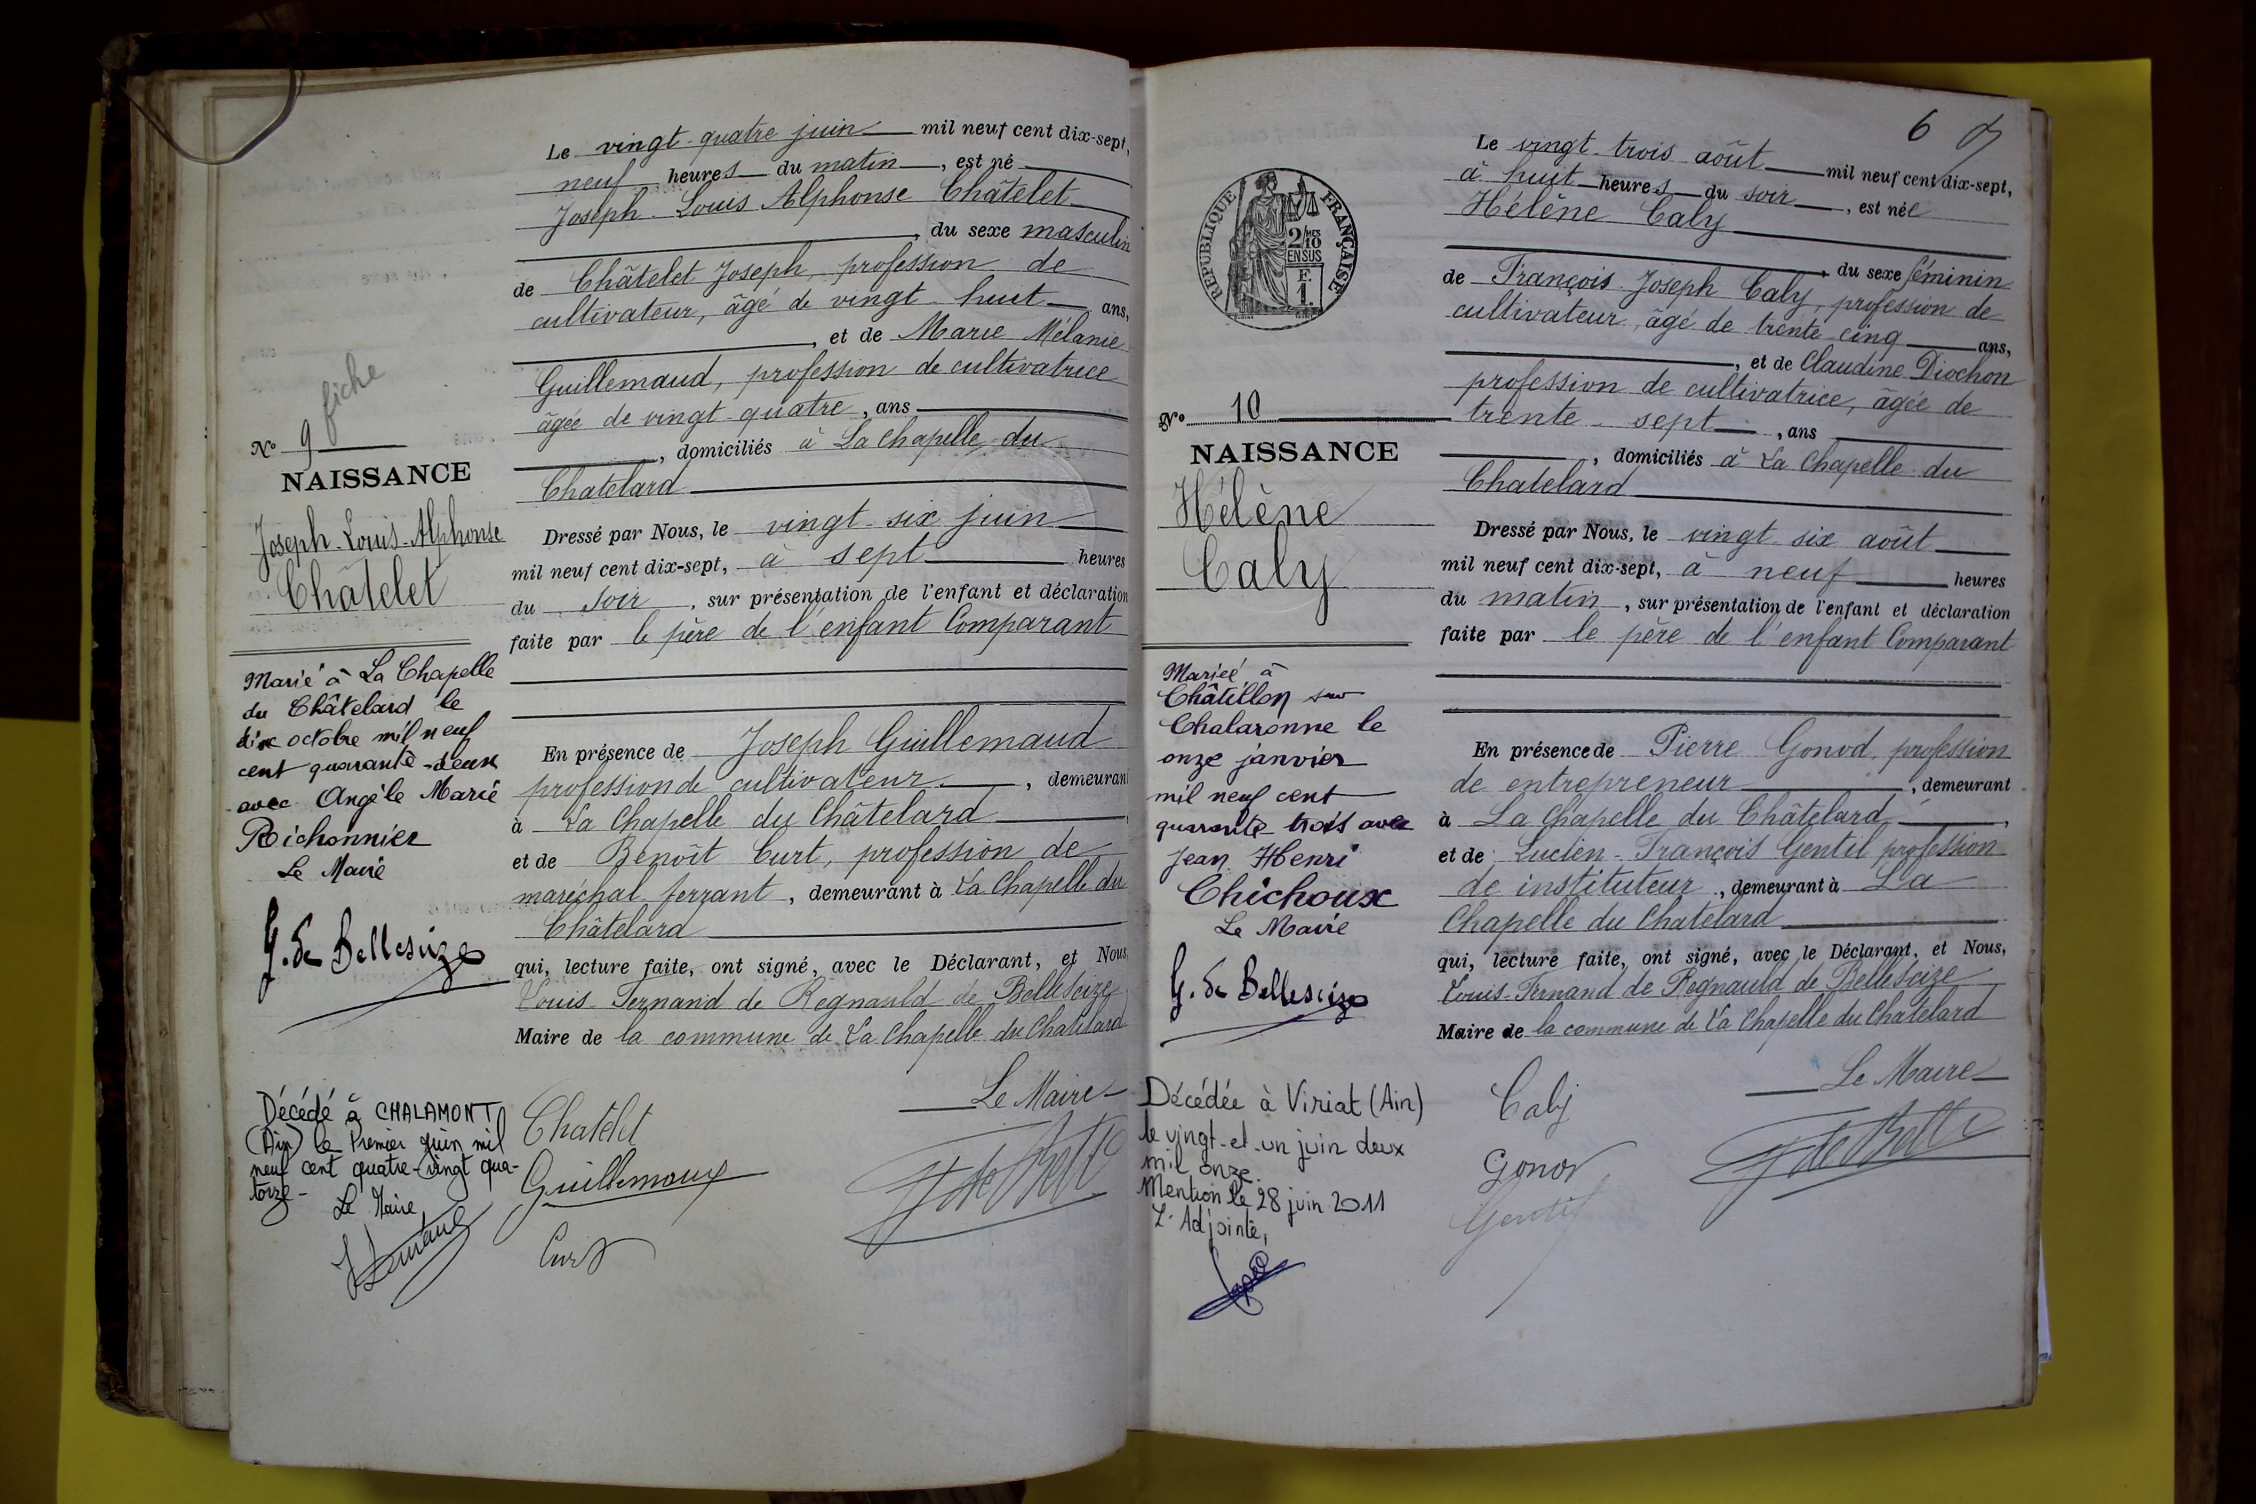 Le vingt-quatre juin mil neuf cent dix-sept,
neuf heures du matin, est né
Joseph-Louis Alphonse Châtelet
, du sexe masculin
de Châtelet Joseph, profession de
cultivateur, âgé de vingt-huit ans,
, et de Marie Mélanie
Guillemaud, profession de cultivatrice
âgée de vingt-quatre, ans
, domiciliés à La Chapelle du
Chatelard
Dressé par Nous, le vingt-six juin
mil neuf cent dix-sept, à sept heures
du soir, sur présentation de l'enfant et déclaration
faite par le père de l'enfant Comparant
En présence de Joseph Guillemaud
profession de cultivateur, demeurant
à La Chapelle du Châtelard
et de Benoît Curt, profession de
maréchal-ferrant, demeurant à La Chapelle du
Châtelard
qui, lecture faite, ont signé, avec le Déclarant, et Nous,
Louis-Fernand de Regnauld de Bellescize
Maire de la commune de La Chapelle du Chatelard
Le Maire
Chatelet
Guillemaux
Curt
fiche
No 9
NAISSANCE
Joseph-Louis-Alphonse
Châtelet
Marié à La Chapelle
du Châtelard le
dix octobre mil neuf
cent quarante-deux
avec Angèle Marie
Richonnier
Le Maire
G. de Bellescize
Décédé à CHALAMONT
(Ain) le Premier juin mil
neuf cent quatre-vingt qua-
torze-
Le Maire
6
Le vingt-trois août mil neuf cent dix-sept,
à huit heures du soir, est née
Hélène Caly
, du sexe féminin
de François Joseph Caly, profession de
cultivateur, âgé de trente-cinq ans,
, et de Claudine Diochon
profession de cultivatrice, âgée de
trente-sept, ans
, domiciliés à La Chapelle du
Chatelard
Dressé par Nous, le vingt-six août
mil neuf cent dix-sept, à neuf heures
du matin, sur présentation de l'enfant et déclaration
faite par le père de l'enfant Comparant
En présence de Pierre Gonod, profession
de entrepreneur, demeurant
à La Chapelle du Châtelard,
et de Lucien-François Gentil profession
de instituteur, demeurant à La
Chapelle du Chatelard
qui, lecture faite, ont signé, avec le Déclarant, et Nous,
Louis-Fernand de Regnauld de Bellescize
Maire de la commune de La Chapelle du Chatelard
Le Maire
Caly
Gonod
Gentil
REPUBLIQUE FRANÇAISE
2/10 MES
EN SUS
F
1.
No 10
NAISSANCE
Hélène
Caly
Mariée à
Châtillon sur
Chalaronne le
onze janvier
mil neuf cent
quarante trois avec
Jean Henri
Chichoux
Le Maire
G. de Bellescize
Décédée à Viriat (Ain)
le vingt-et-un juin deux
mil onze.
Mention le 28 juin 2011
L'Adjointe,